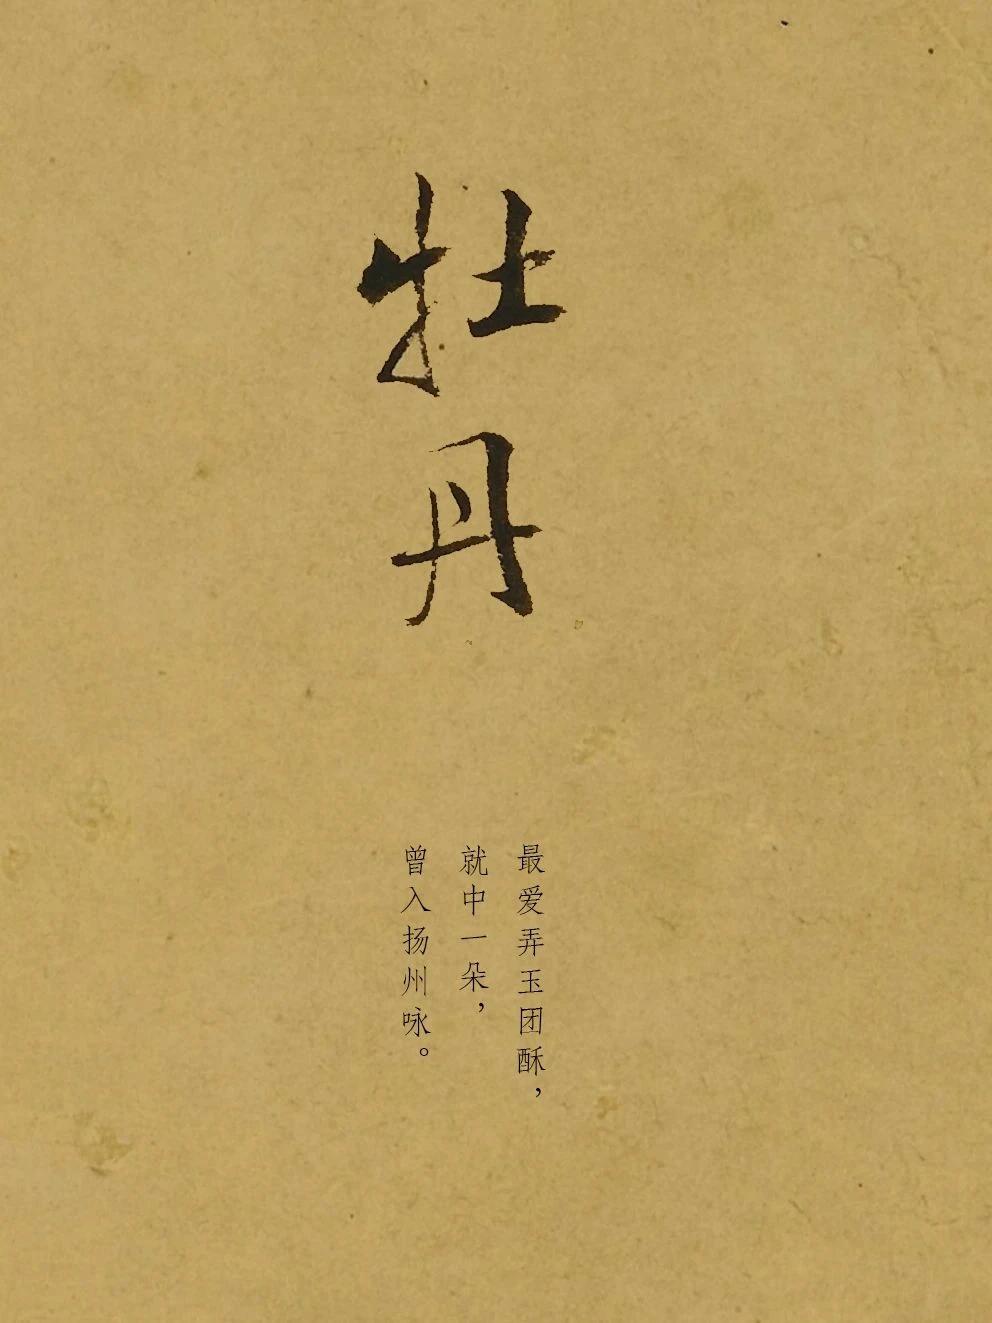 牡丹
最爱弄玉团酥，
就中一朵，
曾入扬州咏。